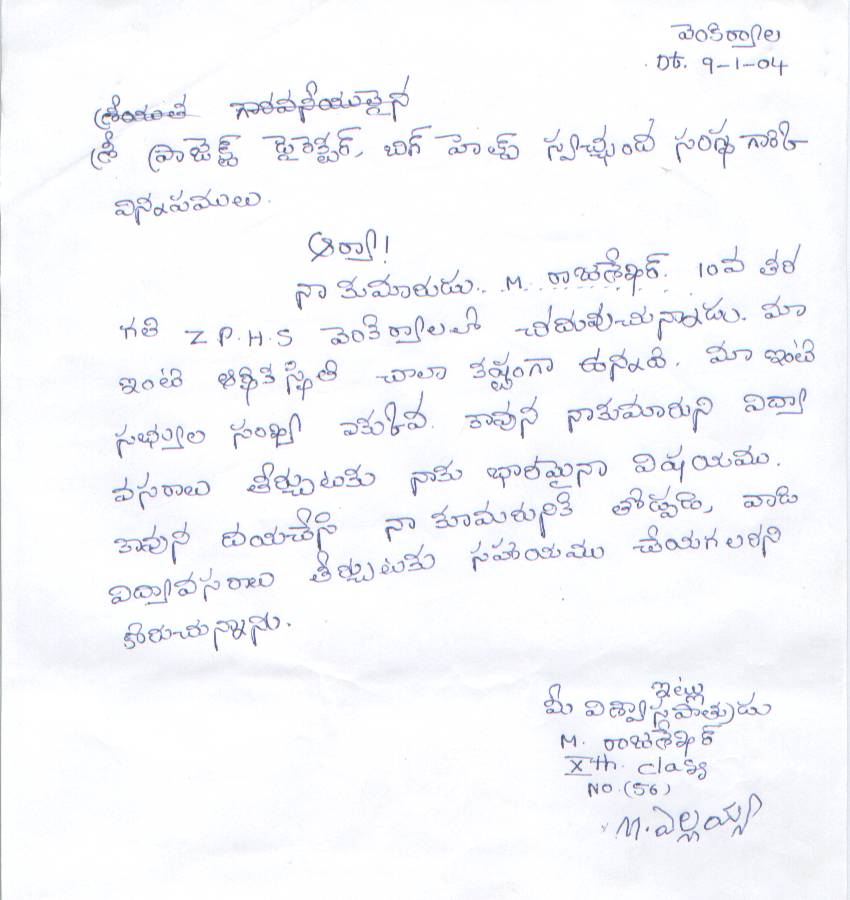 వెంకిర్యాల
Dt. 9-1-04
శ్రీయుత గౌరవనీయులైన
శ్రీ ప్రాజెక్ట్ డైరెక్టర్, బిగ్ హెల్ప్ స్వచ్ఛంద సంస్థ గారికి
విన్నపములు.
ఆర్యా!
నా కుమారుడు. M. రాజశేఖర్. 10వ తర
గతి Z P.H.S వెంకిర్యాలలో చదువుచున్నాడు. మా
ఇంటి ఆర్థిక స్థితి చాలా కష్టంగా ఉన్నది. మా ఇంటి
సభ్యుల సంఖ్య ఎక్కువ. కావున నాకుమారుని విద్యా
వసరాలు తీర్చుటకు నాకు భారమైనా విషయము.
కావున దయచేసి నా కూమరునికి తోడ్పడి, వాడి
విద్యావసరాలు తీర్చుటకు సహాయము చేయగలరని
కోరుచున్నాను.
ఇట్లు
మీ విశ్వాసపాత్రుడు
M. రాజశేఖర్
Xth. class
NO.(56)
M.ఎల్లయ్య